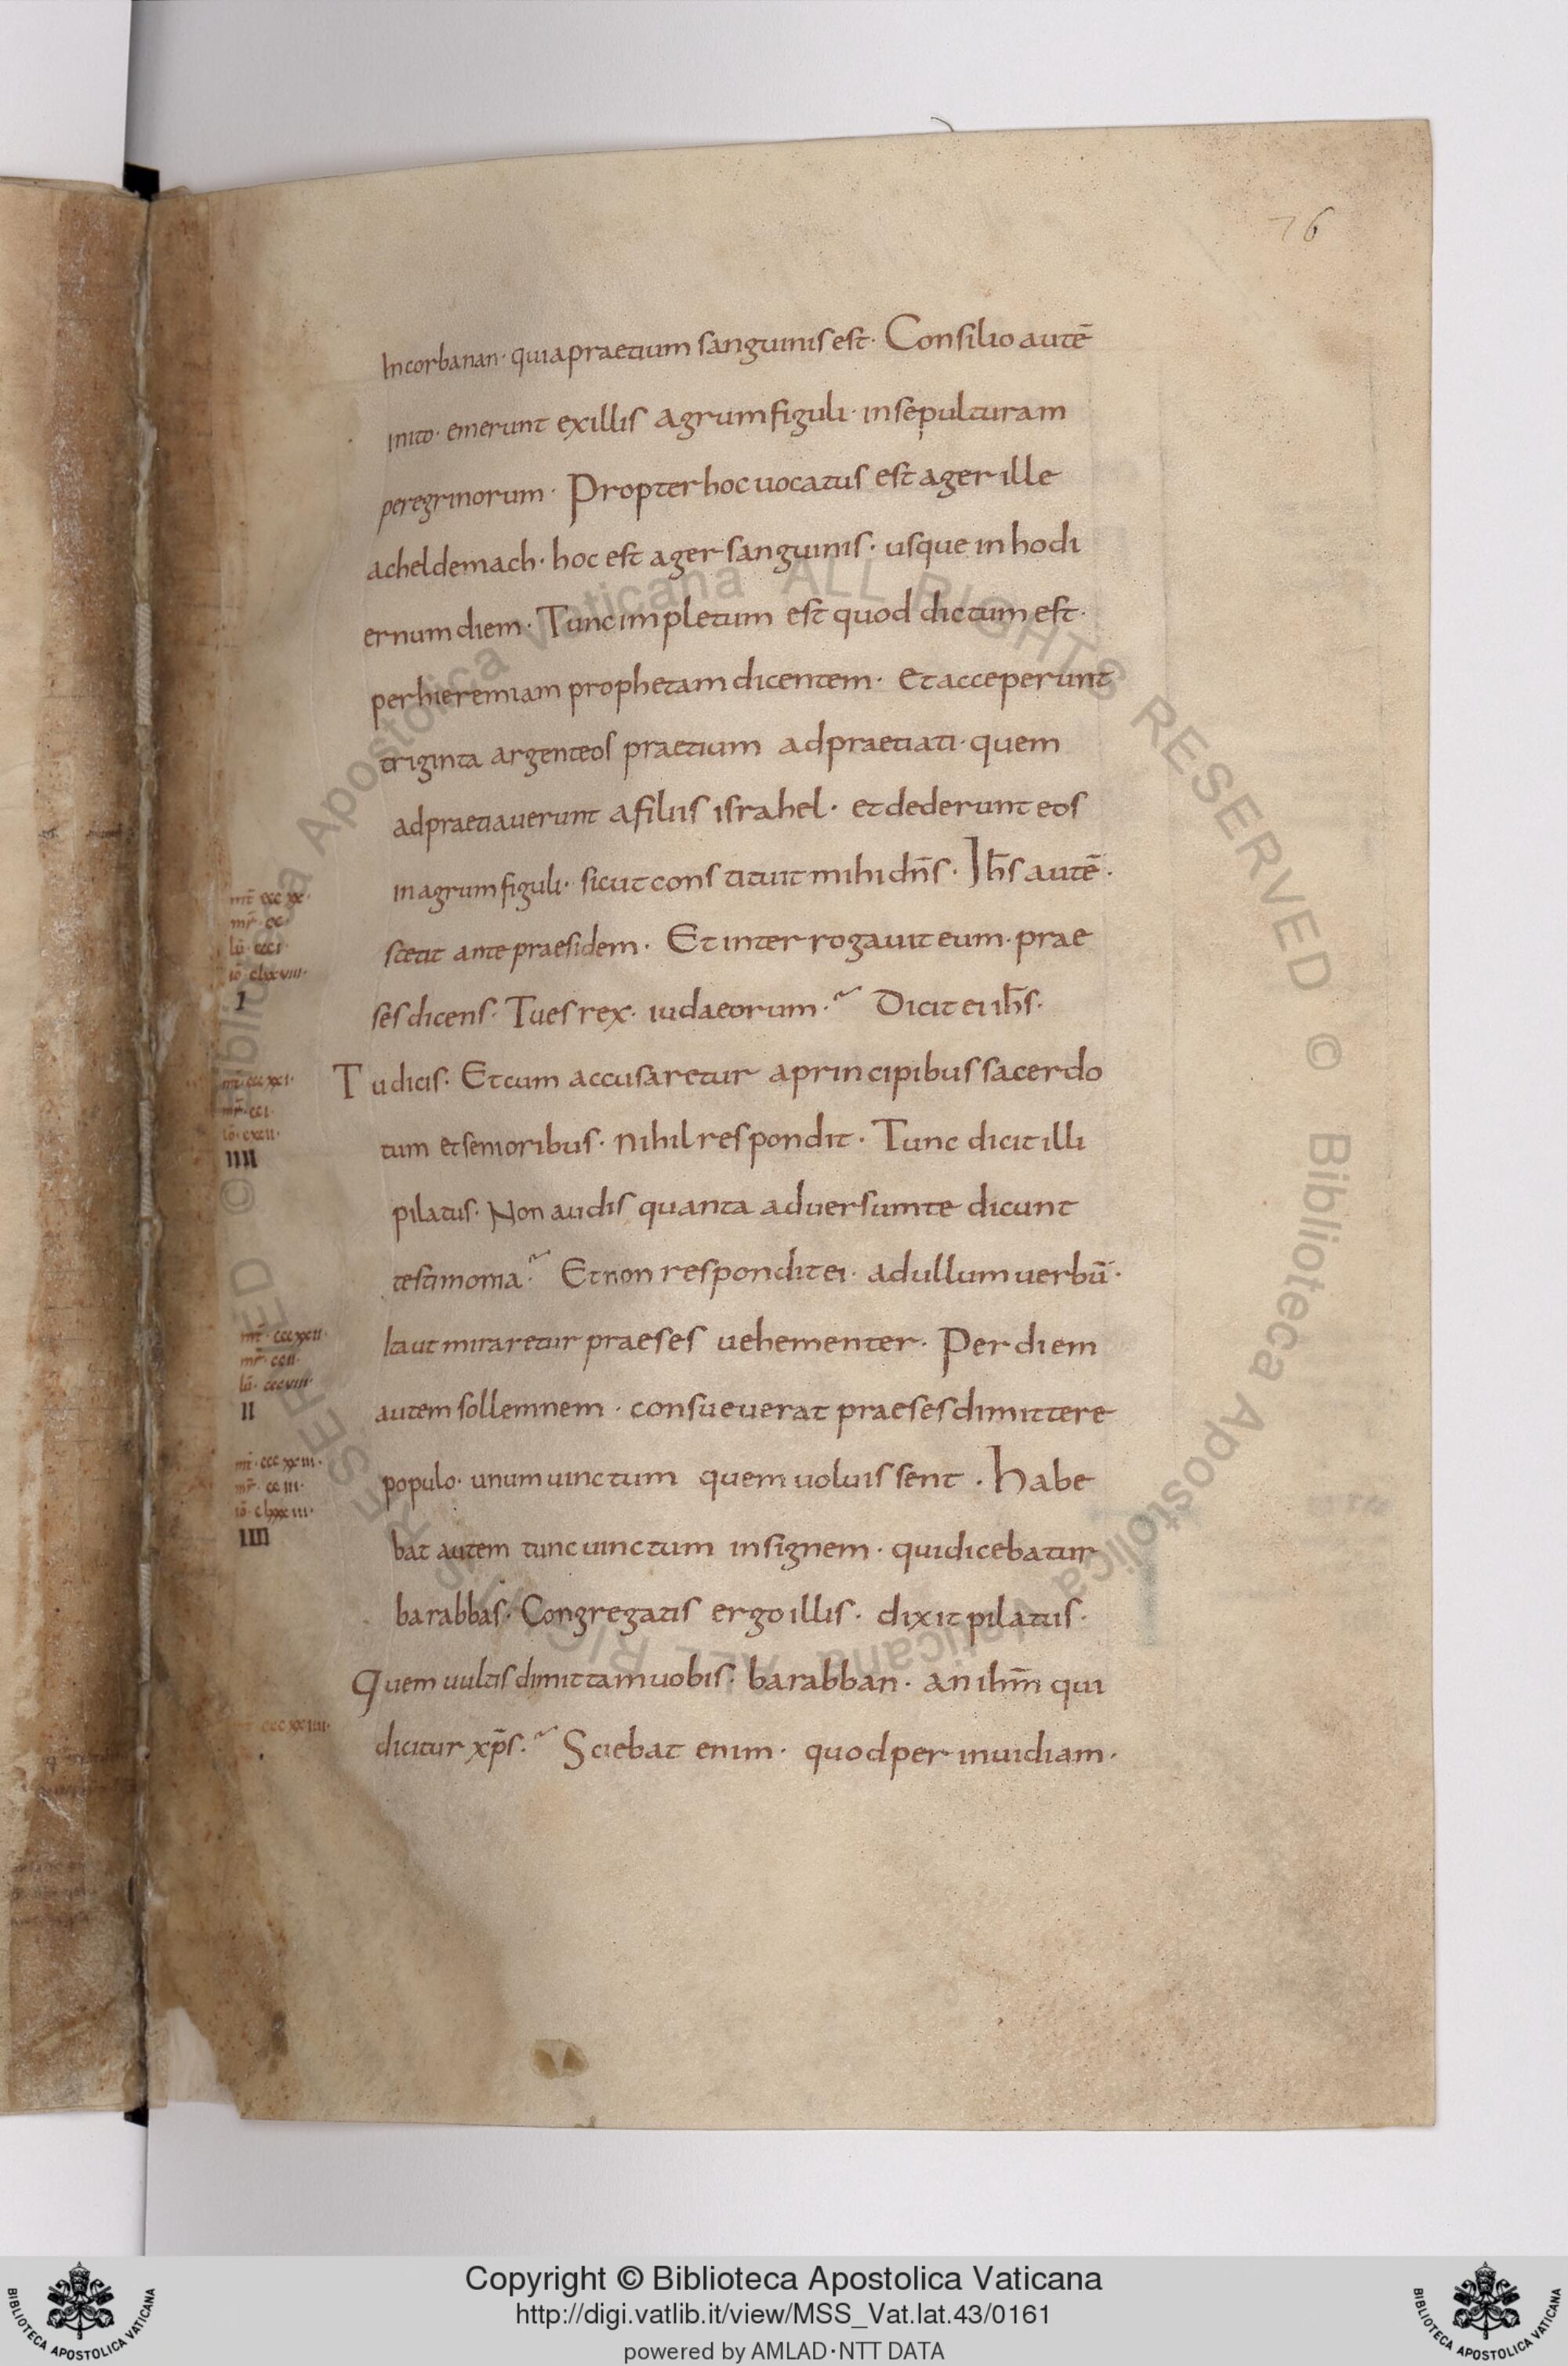 76
In corbanan· quia praetium sanguinis est· Consilio autē
inito· emerunt ex illis agrum figuli· in sepulturam
peregrinorum· Propter hoc uocatus est ager ille
acheldemach· hoc est ager sanguinis· usque in hodi
ernum diem· Tunc impletum est quod dictum est·
per hieremiam prophetam dicentem· Et acceperunt
triginta argenteos praetium adpraetiati· quem
adpraetiauerunt a filiis israhel· et dederunt eos
in agrum figuli· sicut constituit mihi dn̄s· Ih̄s autē·
mt̄ cccxx·
mr̄ cc·
lū ccci·
iō clxxviii·
I
stetit ante praesidem· Et interrogauit eum· prae
ses dicens· Tu es rex· iudaeorum·~ Dicit ei ih̄s·
mt̄ cccxxi·
mr̄ cci·
iō cxcii·
IIII
Tu dicis· Et cum accusaretur a principibus sacerdo
tum et senioribus· nihil respondit· Tunc dicit illi
pilatus· Non audis quanta aduersum te dicunt
testimonia·~ Et non respondit ei· ad ullum uerbū·
mt̄ cccxxii·
mr̄ ccii·
lū cccviii·
II
Ita ut miraretur praeses uehementer· Per diem
autem sollemnem· consueuerat praeses dimittere
mt̄ cccxxiii·
mr̄ cciii·
iō clxxxiii·
IIII
populo· unum uinctum quem uoluissent· habe
bat autem tunc uinctum insignem· qui dicebatur
barabbas· Congregatis ergo illis· dixit pilatus·
Quem uultis dimittam uobis· barabban· an ihm̄ qui
cccxxiiii·
dicitur xp̄s·~ Sciebat enim· quod per inuidiam·
Copyright © Biblioteca Apostolica Vaticana
http://digi.vatlib.it/view/MSS_Vat.lat.43/0161
powered by AMLAD·NTT DATA
BIBLIOTECA APOSTOLICA VATICANA
BIBLIOTECA APOSTOLICA VATICANA
© Biblioteca Apostolica Vaticana ALL RIGHTS RESERVED © Biblioteca Apostolica Vaticana ALL RIGHTS RESERVED